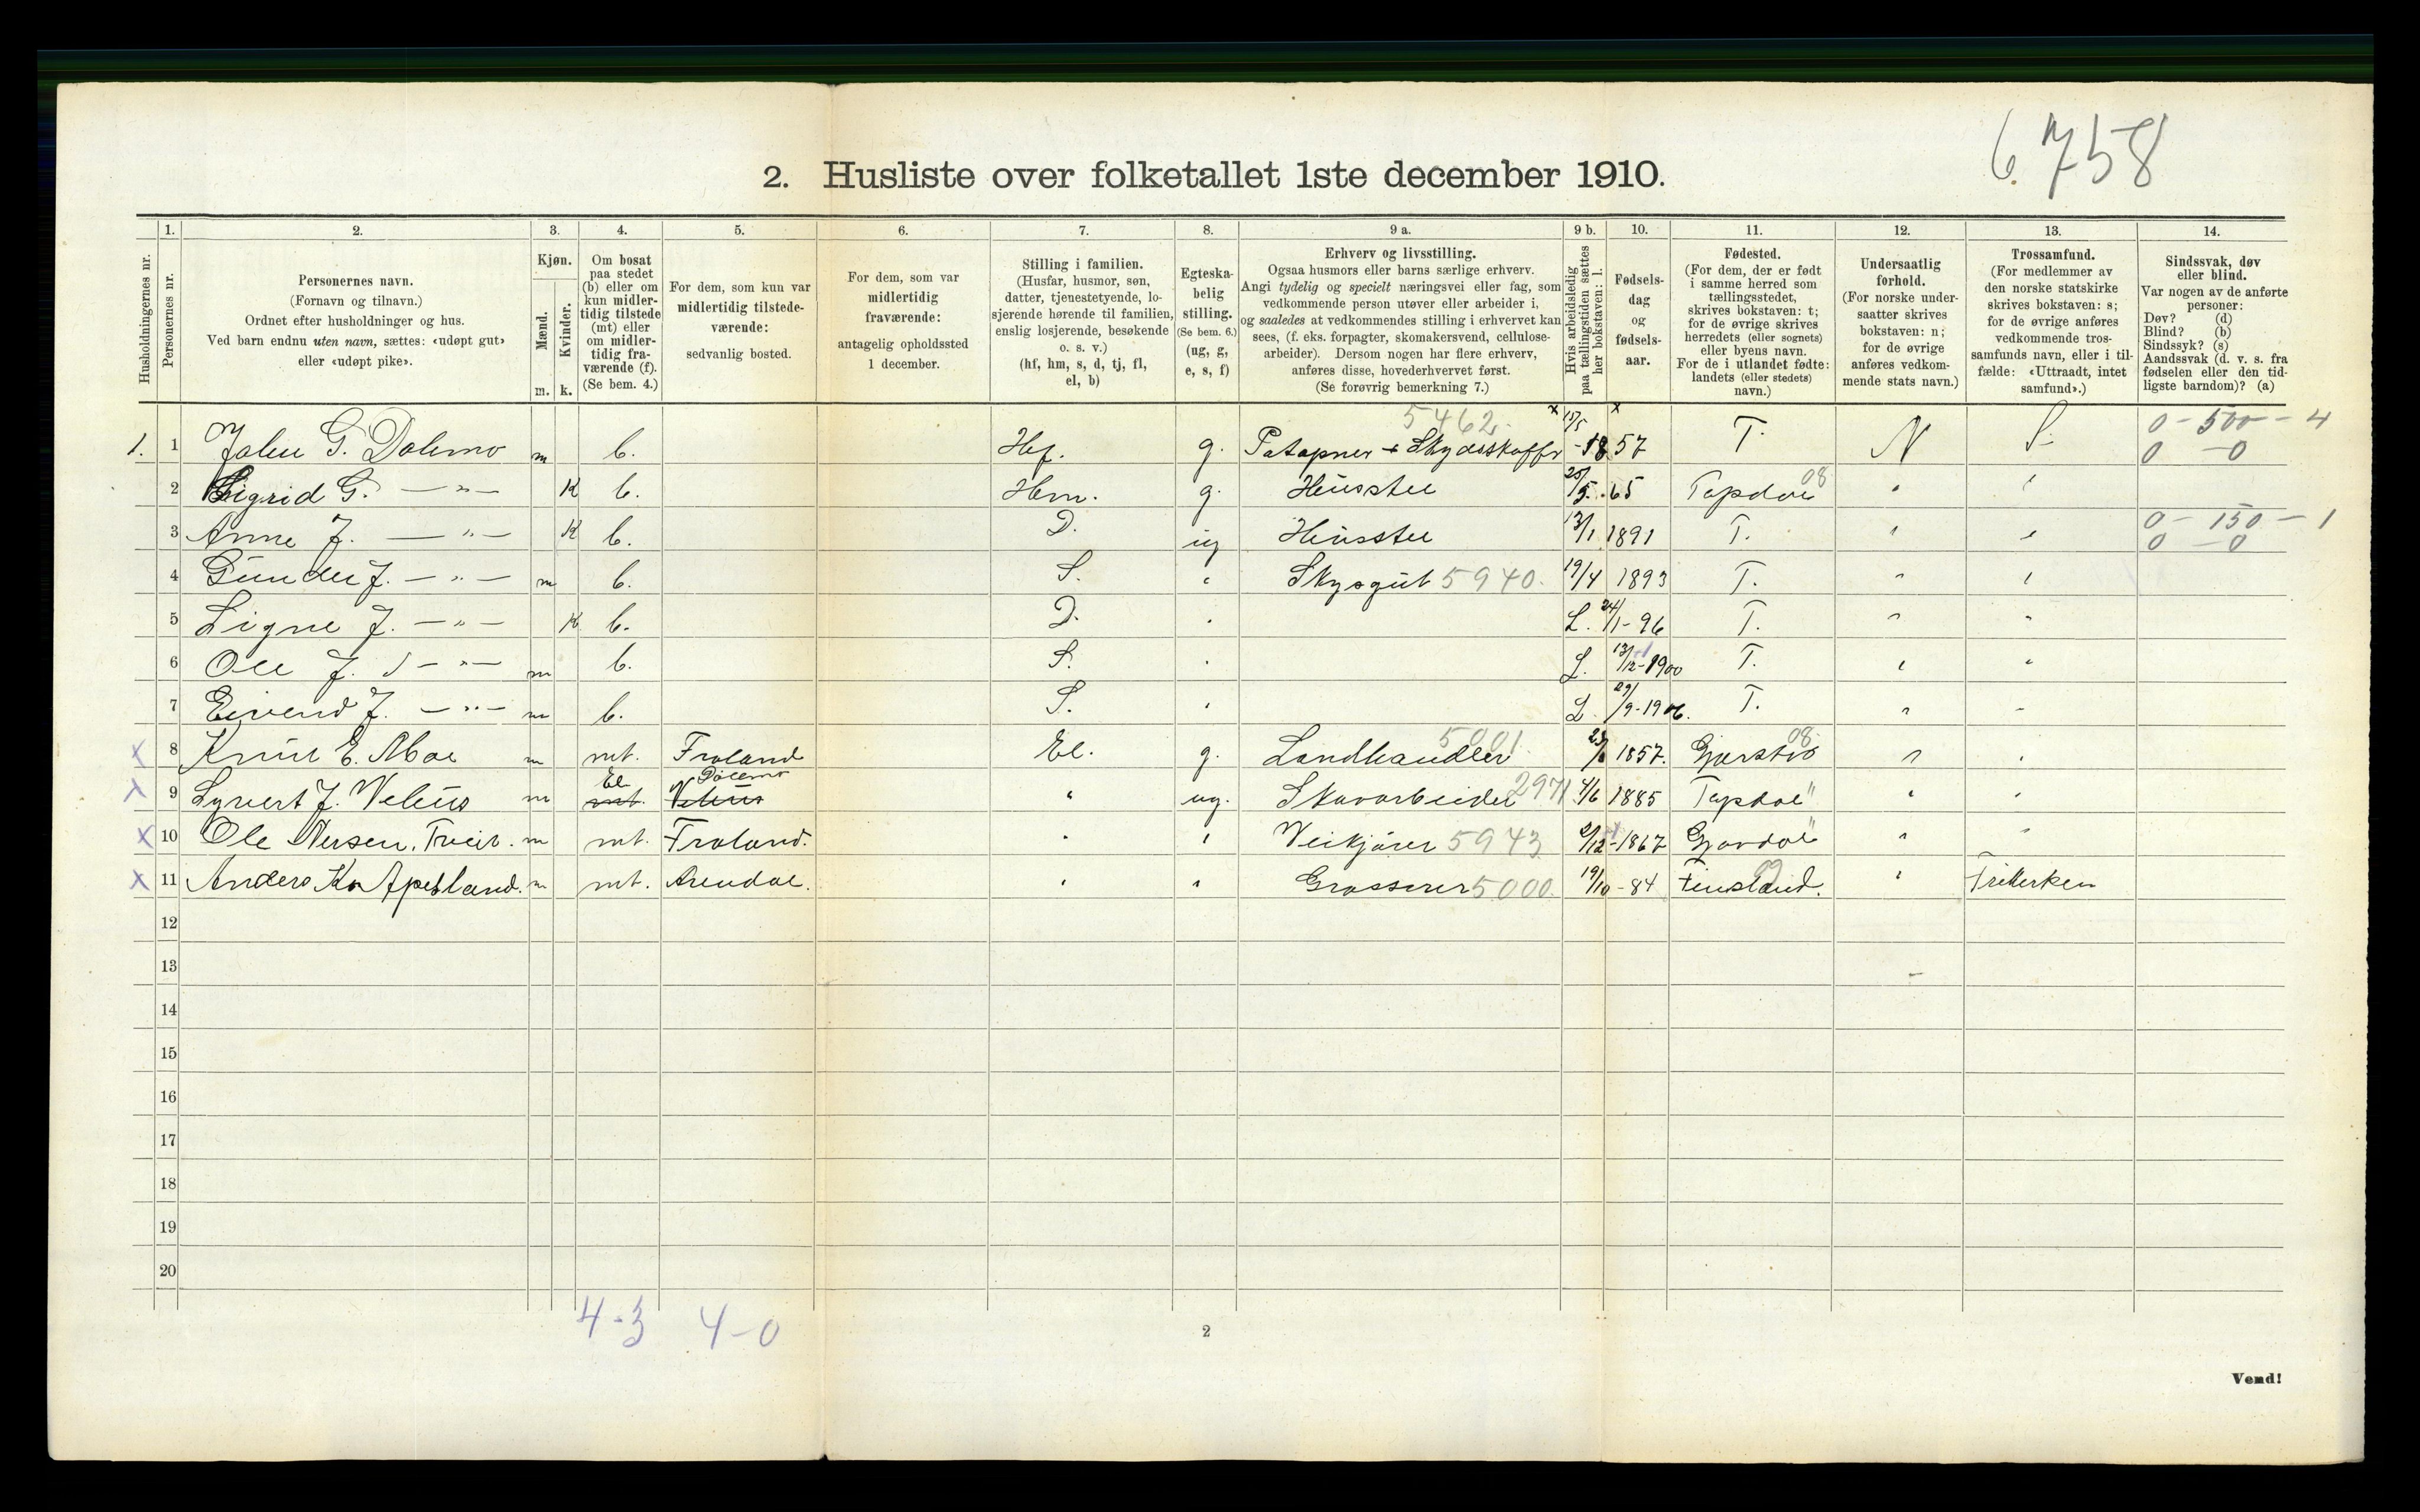 6.758
2. Husliste over folketallet 1ste december 1910.
Husholdningernes nr.
1.
Personernes nr.
2.
Personernes navn.
(Fornavn og tilnavn.)
Ordnet efter husholdninger og hus.
Ved barn endnu uten navn, sættes: «udøpt gut»
eller «udøpt pike».
3.
Kjøn.
Mænd.
Kvinder.
m. k.
4.
Om bosat
paa stedet
(b) eller om
kun midler-
tidig tilstede
(mt) eller
om midler-
tidig fra-
værende (f).
(Se bem. 4.)
5.
For dem, som kun var
midlertidig tilstede-
værende:
sedvanlig bosted.
6.
For dem, som var
midlertidig
fraværende:
antagelig opholdssted
1 december.
7.
Stilling i familien.
(Husfar, husmor, søn,
datter, tjenestetyende, lo-
sjerende hørende til familien,
enslig losjerende, besøkende
o. s. v.)
(hf, hm, s, d, tj, fl,
el, b)
8.
Egteska-
belig
stilling.
(Se bem. 6.)
(ug, g,
e, s, f)
9 a.
Erhverv og livsstilling.
Ogsaa husmors eller barns særlige erhverv.
Angi tydelig og specielt næringsvei eller fag, som
vedkommende person utøver eller arbeider i,
og saaledes at vedkommendes stilling i erhvervet kan
sees, (f. eks. forpagter, skomakersvend, cellulose-
arbeider). Dersom nogen har flere erhverv,
anføres disse, hovederhvervet først.
(Se forøvrig bemerkning 7.)
9 b.
Hvis arbeidsledig
paa tællingstiden sættes
her bokstaven: l.
10.
Fødsels-
dag
og
fødsels-
aar.
11.
Fødested.
(For dem, der er født
i samme herred som
tællingsstedet,
skrives bokstaven: t;
for de øvrige skrives
herredets (eller sognets)
eller byens navn.
For de i utlandet fødte:
landets (eller stedets)
navn.)
12.
Undersaatlig
forhold.
(For norske under-
saatter skrives
bokstaven: n;
for de øvrige
anføres vedkom-
mende stats navn.)
13.
Trossamfund.
(For medlemmer av
den norske statskirke
skrives bokstaven: s;
for de øvrige anføres
vedkommende tros-
samfunds navn, eller i til-
fælde: «Uttraadt, intet
samfund».)
14.
Sindssvak, døv
eller blind.
Var nogen av de anførte
personer:
Døv? (d)
Blind? (b)
Sindssyk? (s)
Aandssvak (d. v. s. fra
fødselen eller den tid-
ligste barndom)? (a)
5462. 0 - 500 - 4
1. 1 G. Dølemo m b. Hf. g. 15/5 -1857 T. N S. 0 - 0
2 Sigrid G. — " — K b. Hm. g. 5. 65 08
3 Anne J. — " — K b. D. ug 13/1 1891 T. " " 0 - 150 - 1
0 - 0
4 J. — " — m b. S. " Skysgut 5940. 19/4 1893 T. " "
5 Signe J. — " — K b. D. " L. 24/1 - 96 T. " "
6 J. — " — m b. S. " L. 13/12-1900 T. " "
7 J. — " — m b. S. " L. 29/9-1906. T. " "
X 8 Knut E. m mt. Froland El. g. Landhandler 5001. 1857. 08 " "
X 9 J. m El mt. Dølemo " ug. Skovarbeider 2971 4/6 1885 " " "
X 10 Ole m mt. Froland. " " Veikjører 5943 1867 " " "
X 11 Anders m mt. Arendal. " " Grosserer 5000. 19/10 - 84 Finsland. 09 " Frikerken
12
13
14
15
16
17
18
19
20
4-3 4-0
2
Vend!